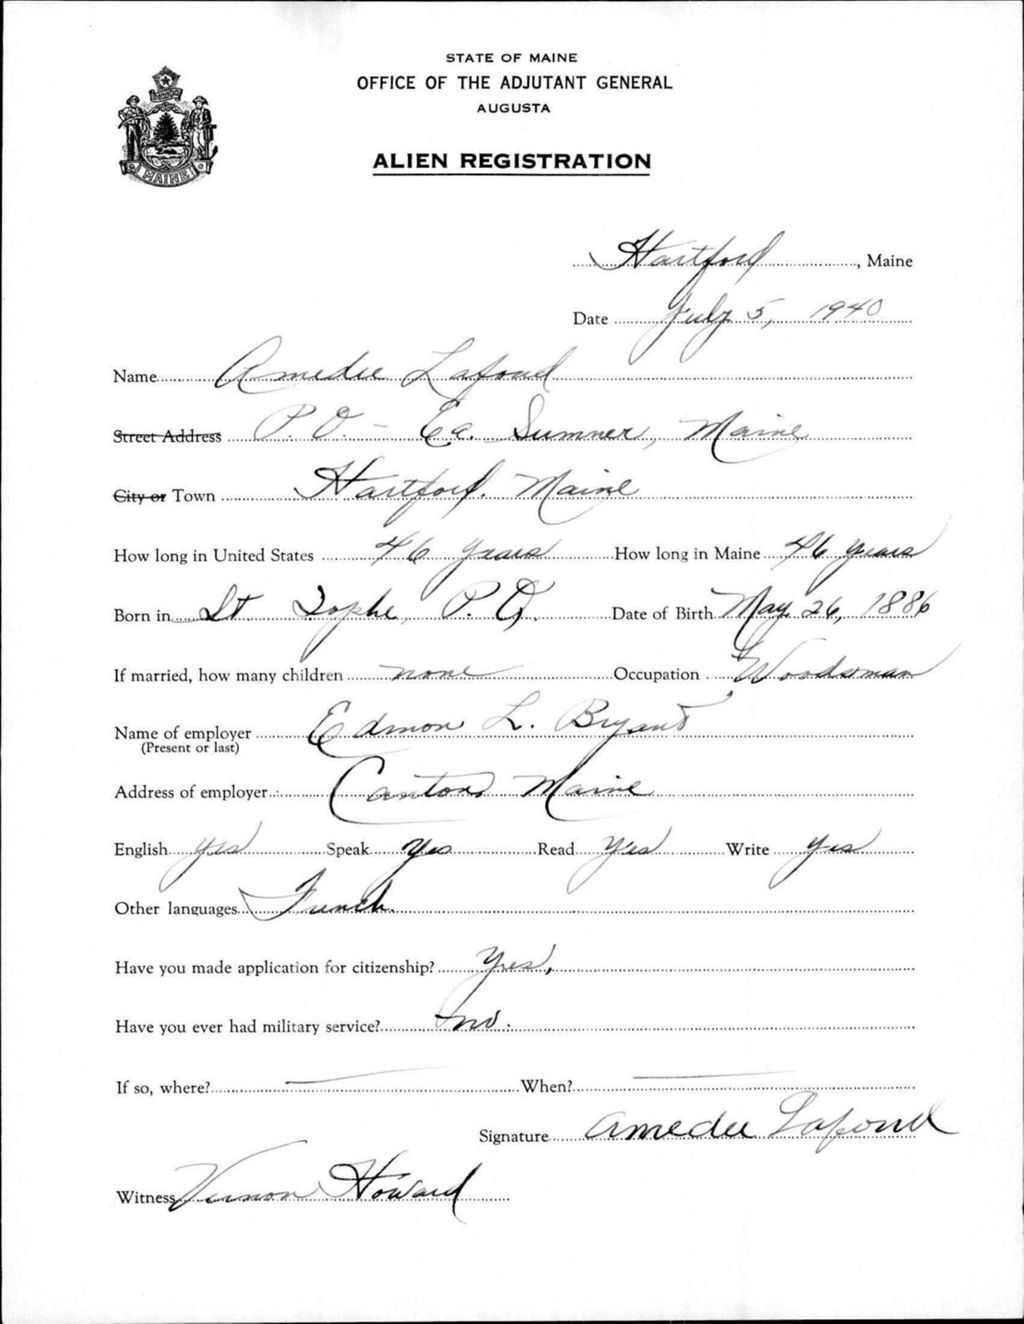 STATE OF MAINE
OFFICE OF THE ADJUTANT GENERAL
AUGUSTA
ALIEN REGISTRATION
MAINE
Hartford, Maine
Date July 5, 1940
Name Amedee Lafond
Street Address P.O. - Ea. Sumner, Maine
City or Town Hartford. Maine
How long in United States 46 years How long in Maine 46 years
Born in St Sophe, P.Q. Date of Birth May 26, 1886
If married, how many children none Occupation Woodsman
Name of employer Edmon L. Bryant
(Present or last)
Address of employer Canton, Maine
English yes Speak Yes Read Yes Write Yes
Other languages French.
Have you made application for citizenship? Yes,
Have you ever had military service? no.
If so, where? — When? —
Signature Amedee Lafond
Witness Vernon Howard